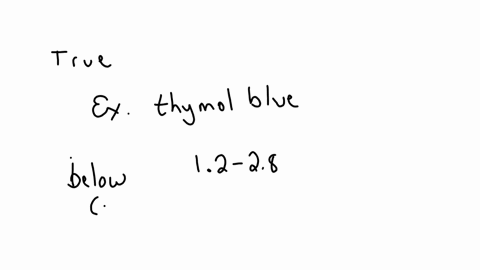 True
Ex. thymol blue
below 1.2-2.8
(